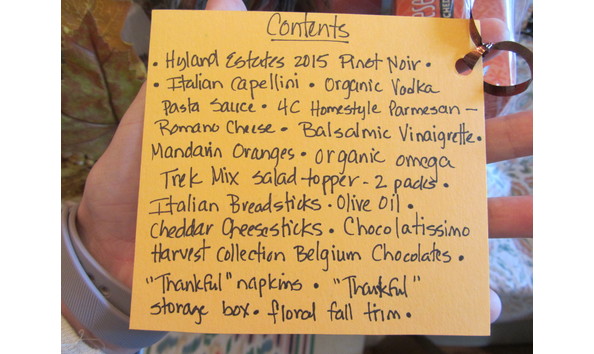 Contents
• Hyland Estates 2015 Pinot Noir •
• Italian Capellini • Organic Vodka
Pasta Sauce • 4C Homestyle Parmesan –
Romano Cheese • Balsalmic Vinaigrette •
Mandarin Oranges • organic omega
Trek Mix salad topper - 2 packs •
Italian Breadsticks • Olive Oil •
Cheddar Cheesesticks • Chocolatissimo
Harvest Collection Belgium Chocolates •
"Thankful" napkins • "Thankful"
storage box • floral fall trim •